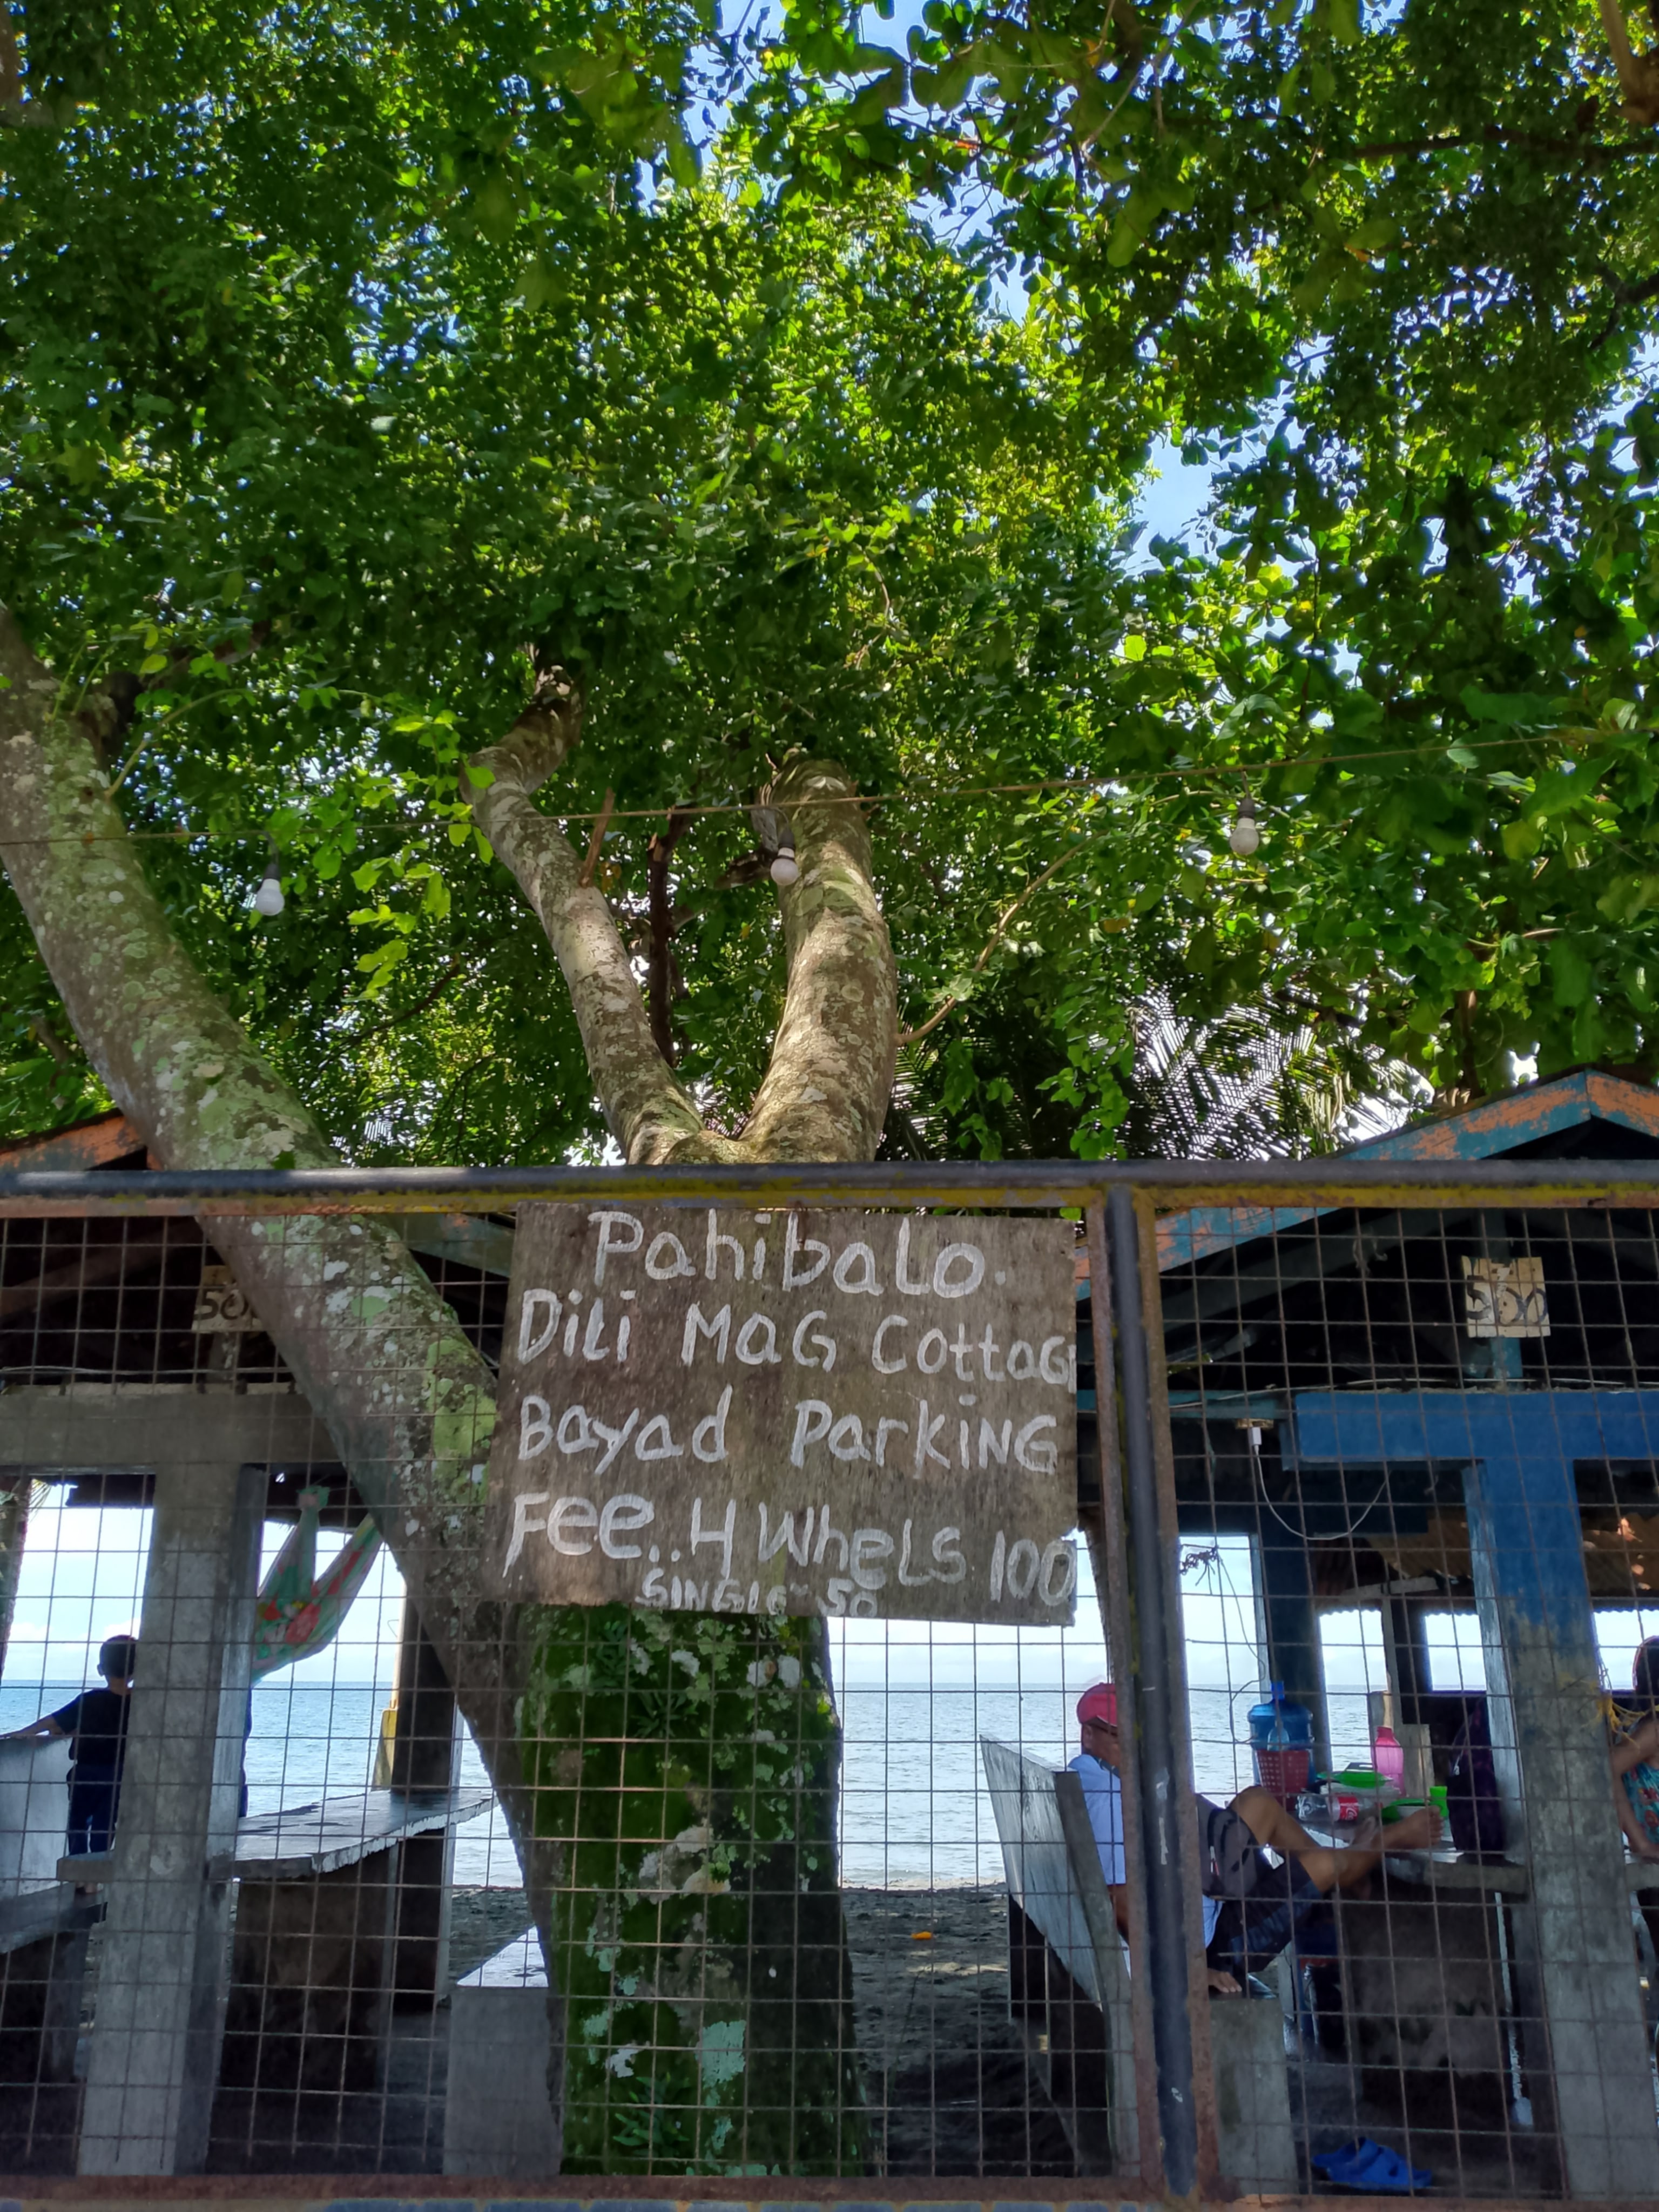 Pahibalo.
Dili Mag Cottag
Bayad Parking
Fee.. 4 Whels 100
Single 50
500